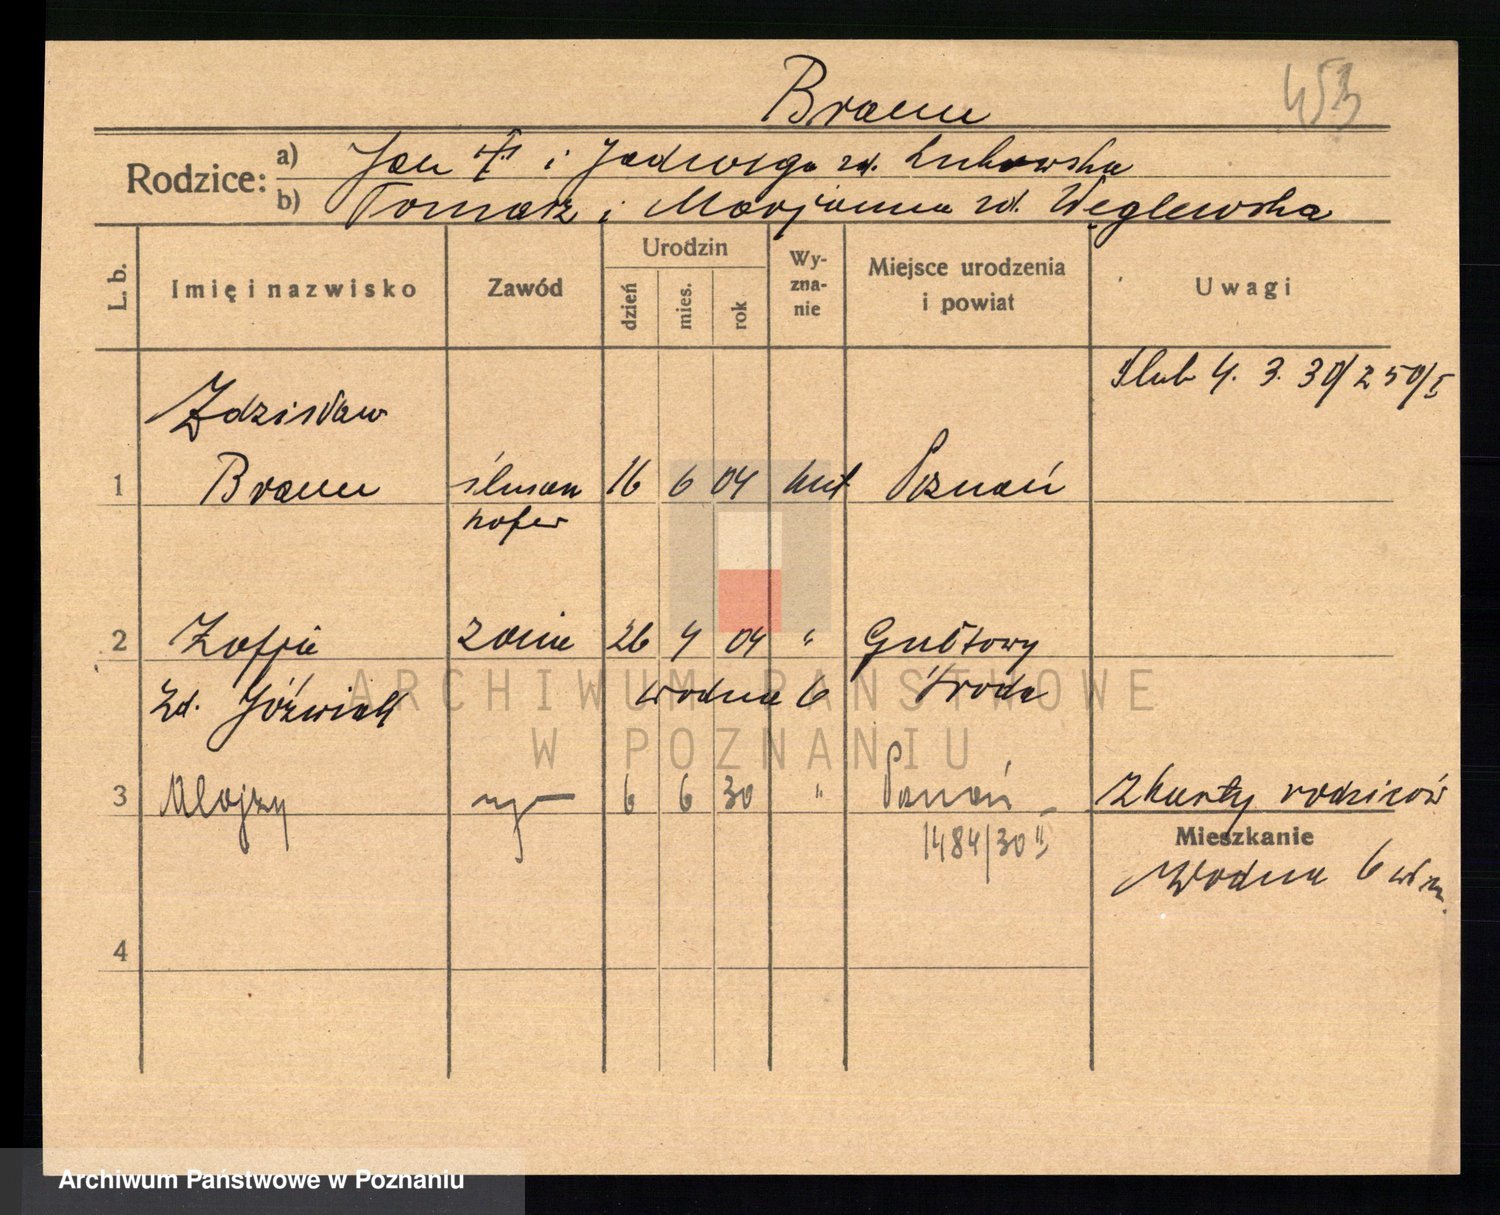 Braun
Rodzice:
a) Jan † i Jadwiga zd. Lukowska
b) Tomasz i Marjanna zd. Węglewska
L. b.
Imię i nazwisko
Zawód
Urodzin
dzień
mies.
rok
Wy-
zna-
nie
Miejsce urodzenia
i powiat
Uwagi
Ślub 4. 3. 30/Z 50/I
Zdzisław
1 Braun 16 6 04 kat Poznań
2 Zofja żona 26 4 04 " Gułtowy
Zd. Jóźwiak Wodna 6 Środa
3 Alojzy 6 6 30 " Poznań Z karty rodziców
1484/30 II
Mieszkanie
Wodna 6
4
ARCHIWUM PAŃSTWOWE
W POZNANIU
Archiwum Państwowe w Poznaniu